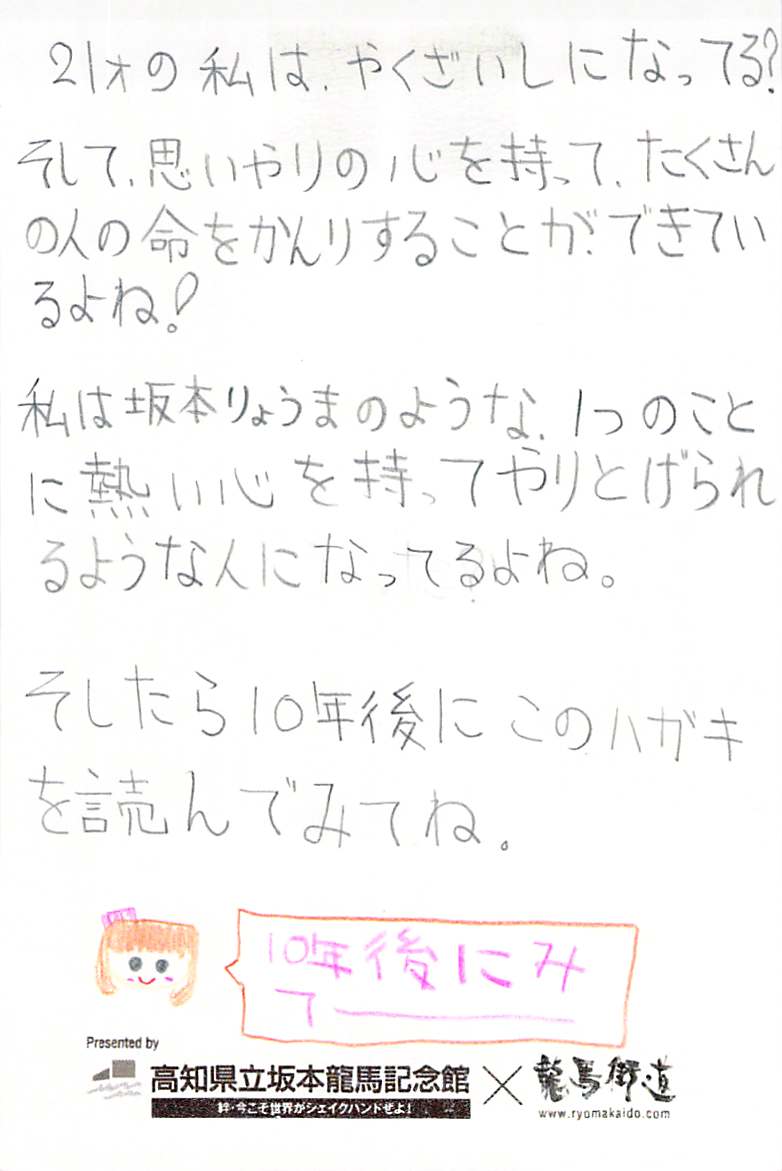 21才の私は、やくざいしになってる?
そして、思いやりの心を持って、たくさん
の人の命をかんりすることが、できてい
るよね!
私は坂本りょうまのような、1つのこと
に熱い心を持ってやりとげられ
るような人になってるよね。
そしたら10年後にこのハガキ
を読んでみてね。
10年後にみ
てー
Presented by
高知県立坂本龍馬記念館×龍馬街道
絆・今こそ世界がシェイクハンドぜよ!
www.ryomakaido.com